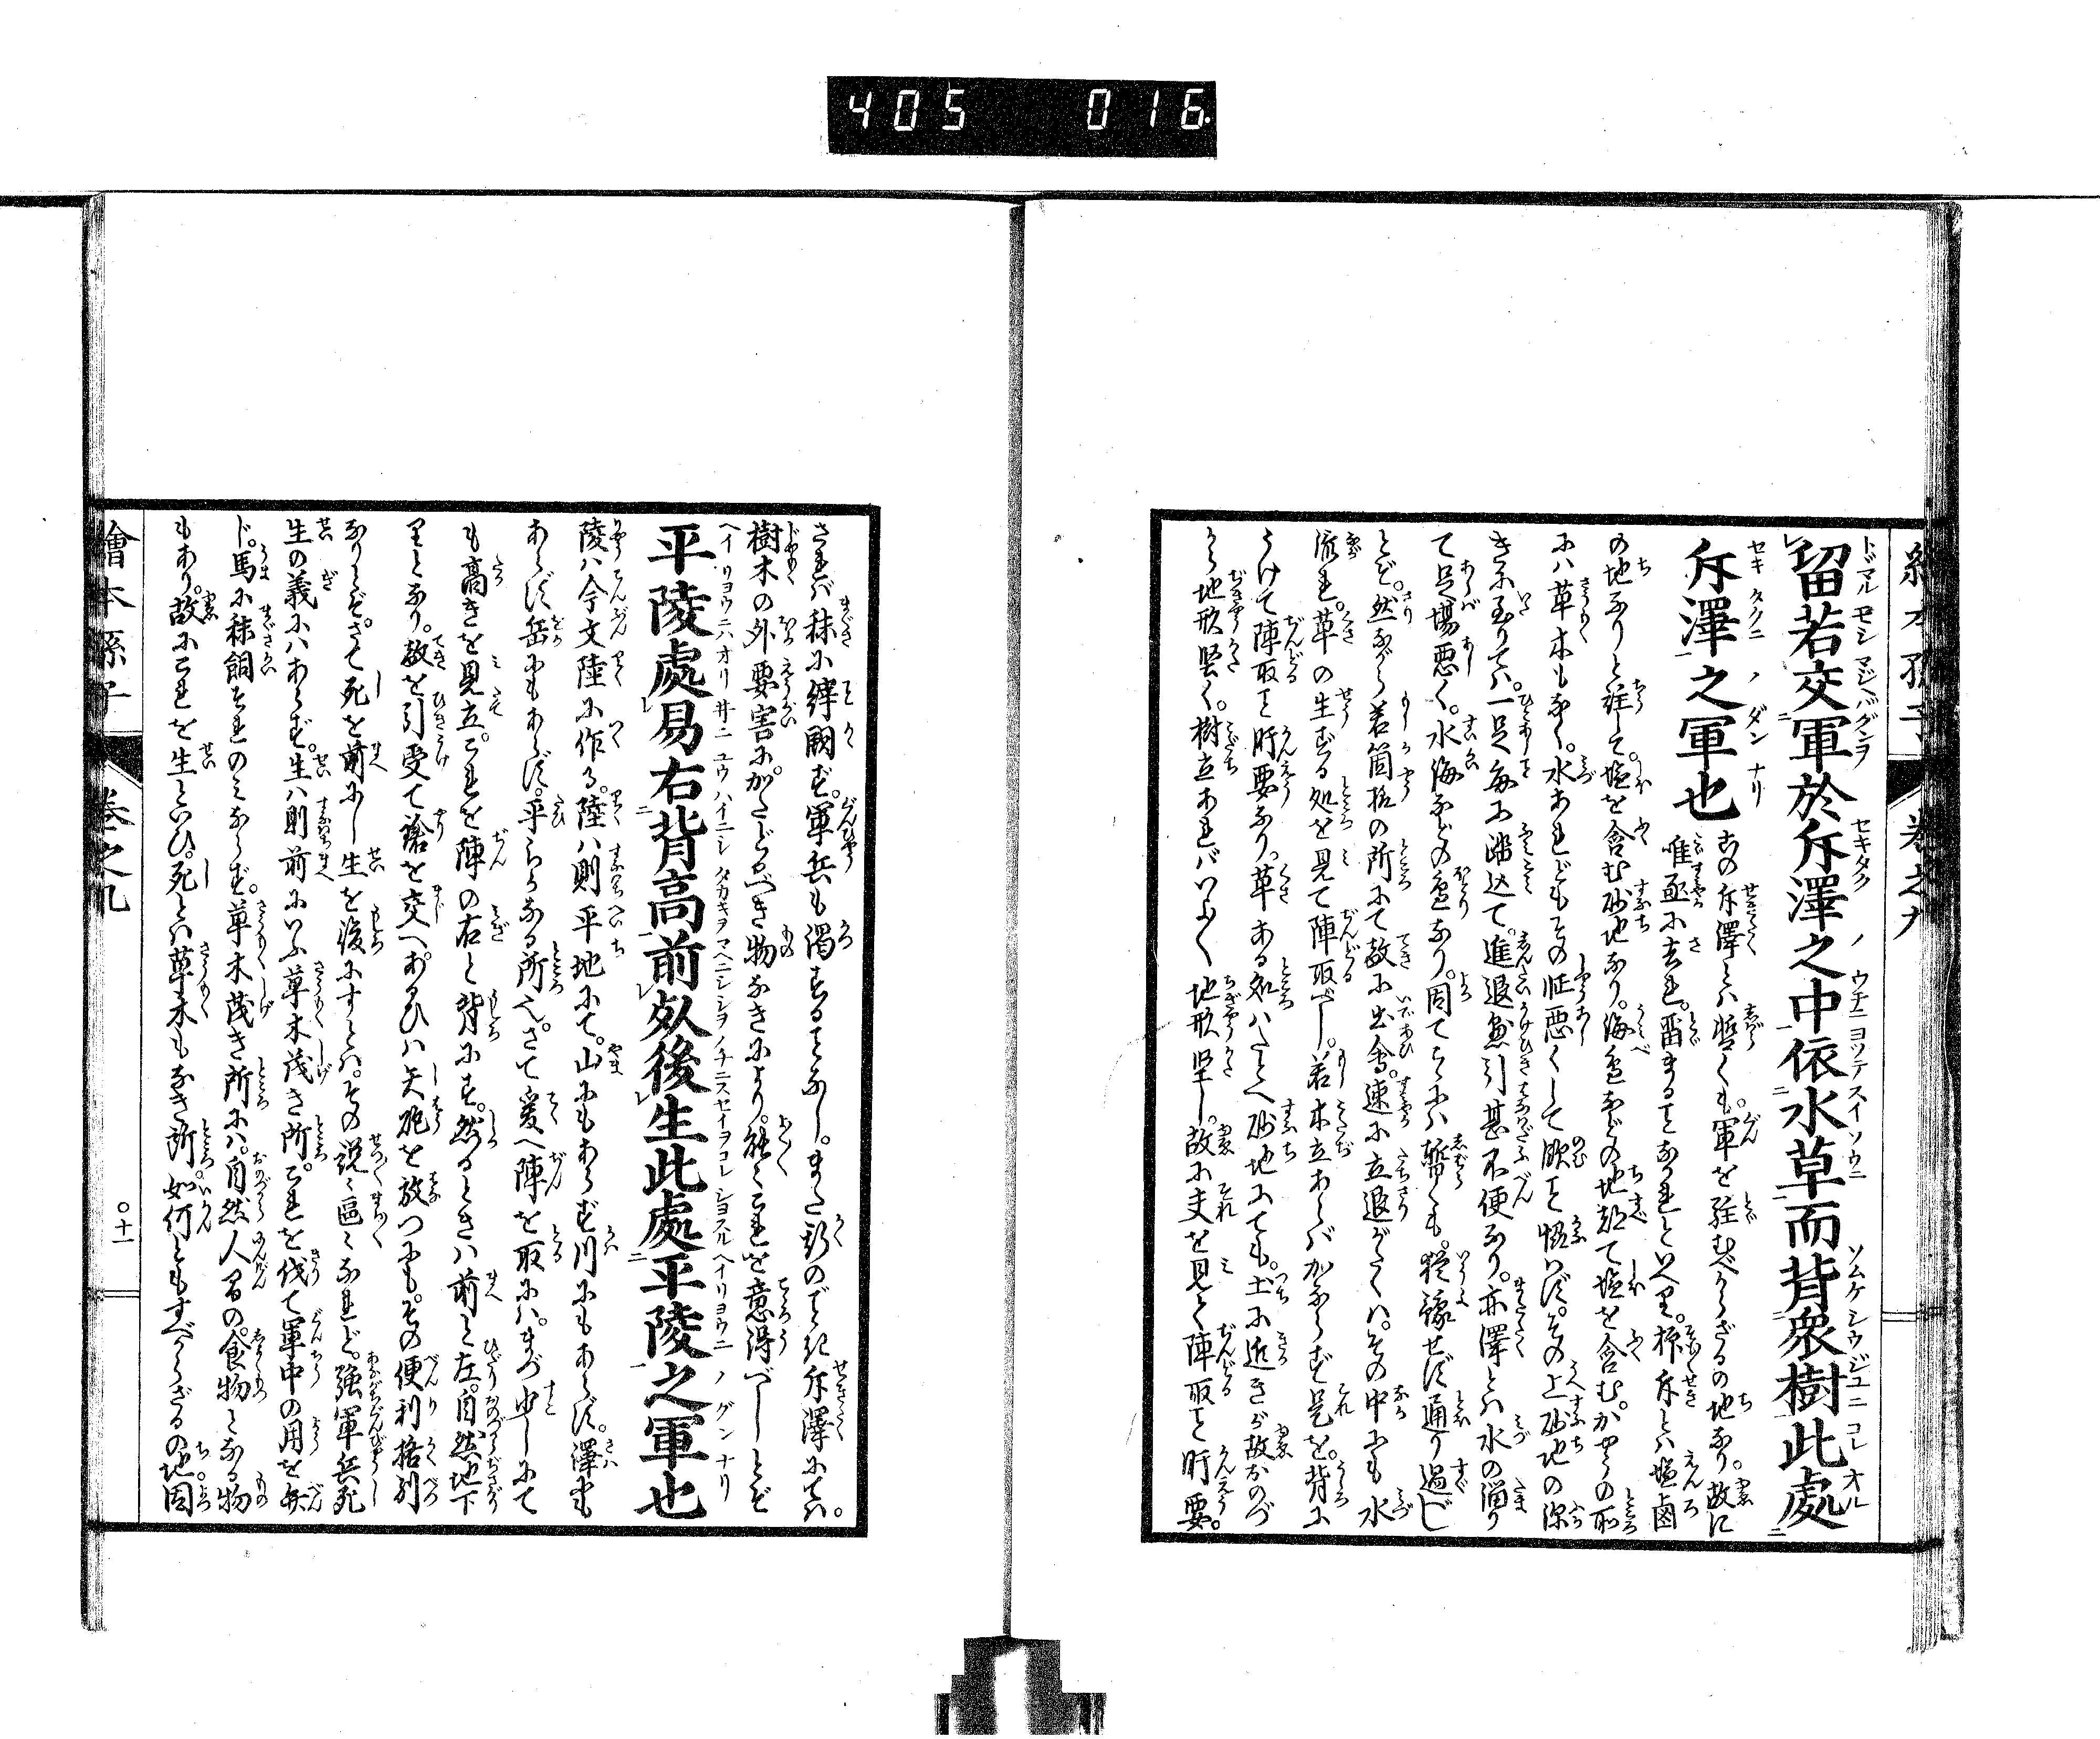 405 016
繪本孫子 巻之九
留若交軍於斥澤之中依水草而背衆樹此處
斥澤之軍也
この斥澤とハ暫くも。軍を駐むべからざるの地なり。故に
唯亟に去れ。畱まることなかれといへり。 斥とハ塩鹵
の地なりと註して。塩を含む砂地なり。海邉などの地都て塩を含む。かやうの所
にハ草木もなく。水あれどもその性悪くして飲こと 。その上砂地の深
きに至りてハ。一足毎に踏込て。進退懸引甚不便なり。亦澤とハ水の溜り
て足場悪く。水海などの邉なり。因てこゝにハ暫くも。猶豫せず通り過べし
とぞ。然ながら若箇様の所にて敵に出會。速に立退がたくハ。その中にも水
流れ。草の生ずる処を見て陣取べし。若木立あらバかならず是を。背に
うけて陣取こと肝要なり。草ある処ハたとへ砂地にても。土に近きが故おのづ
から地形堅く。樹立あれバいよ〱地形堅し。故に夫を見て陣取こと肝要。
されバ秣に 。軍兵も渇することなし。また のごとき斥澤にてハ。
樹木の外要害に。かたどるべき物なきにより。能〻これを意得べしとぞ
平陵處易右背高前死後生此處平陵之軍也
陵ハ今文陸に作る。陸ハ則平地にて。山にもあらず川にもあらず。澤にも
あらず岳にもあらず。平らかなる所也。さて爰へ陣を取にハ。まづ少しにて
も高きを見立。これを陣の右と背にす。然るときハ前と左。自然地下
りとなり。敵を引受て鎗を交へ。あるひハ矢砲を放つにも。その便利格別
なりとぞ。さて死を前にし生を後にすとハ。その説〻區〻なれど。強軍兵死
生の義にハあらず。生ハ則前にいふ草木茂き所。これを伐て軍中の用を弁
ド。馬に秣飼それのみならず。草木茂き所にハ。自然人間の。食物となる物
もあり。故にこれを生といひ。死とハ草木もなき所。如何ともすべからざるの地。因
繪本孫子 巻之九 〇十一